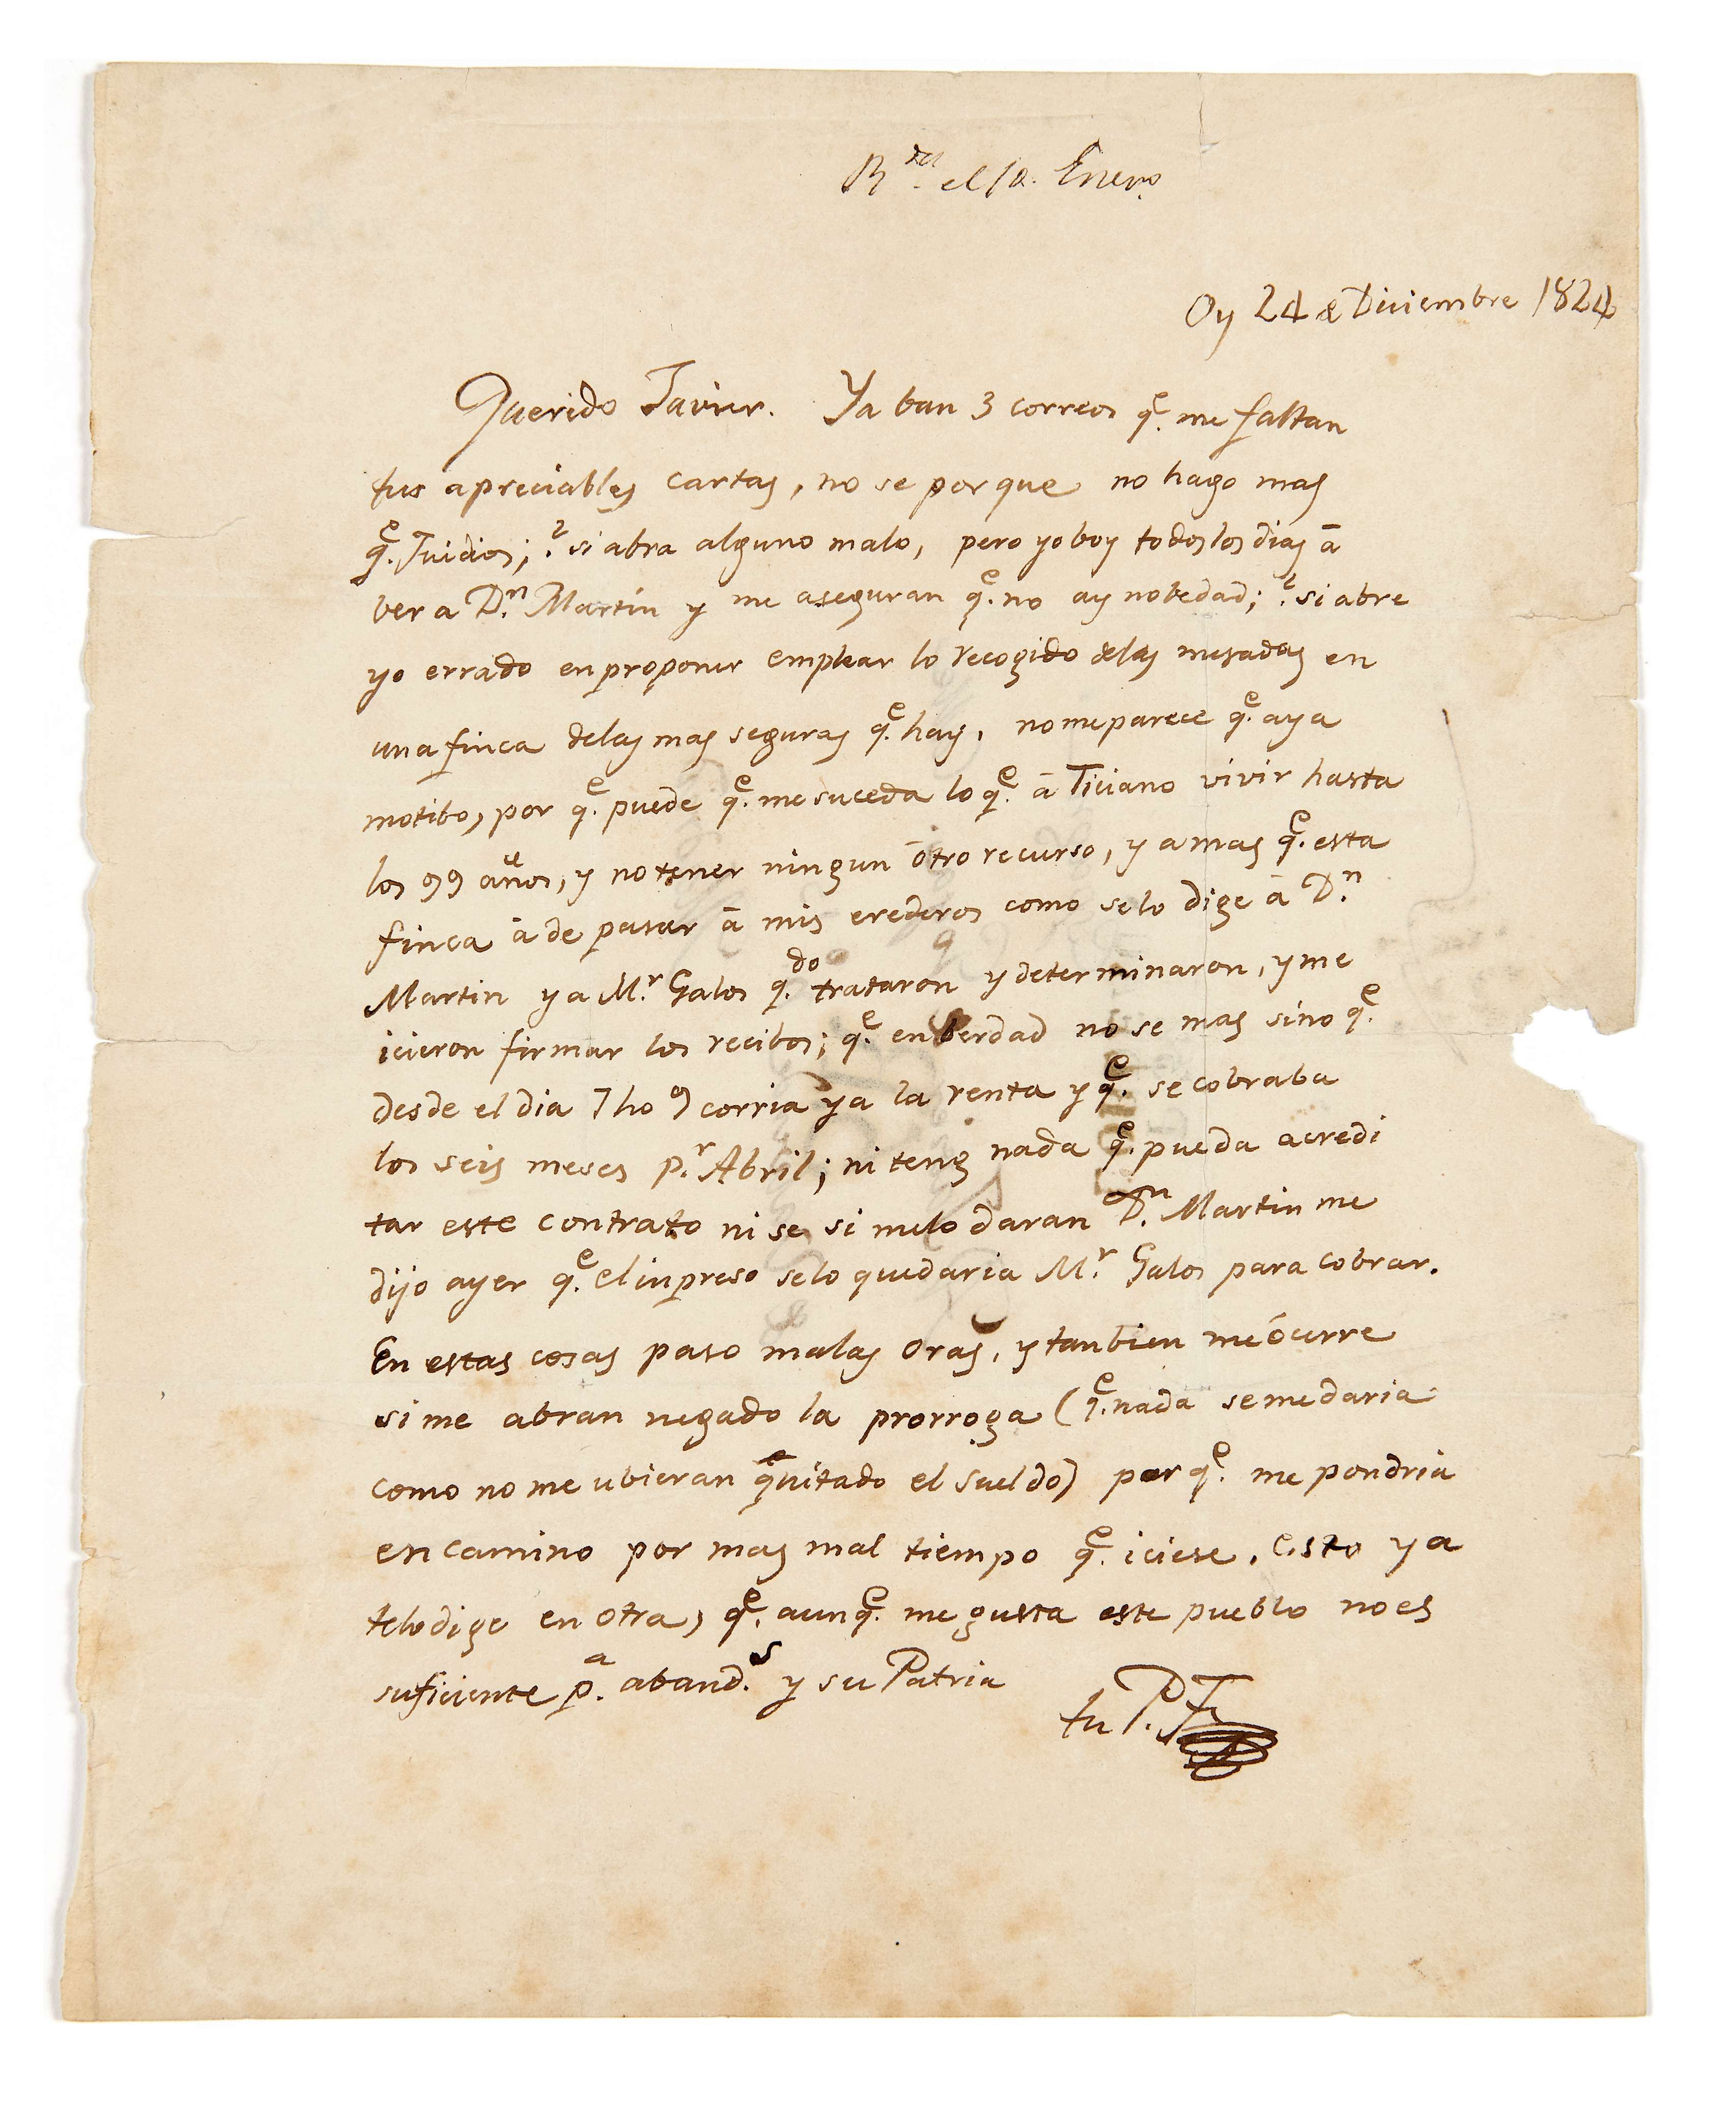 R.da el 10. Enero
Oy 24 de Diciembre 1824
Querido Javier. Ya ban 3 correos q.e me faltan
tus apreciables cartas, no se porque no hago mas
q.e Juicios; ¿si abra alguno malo, pero yo boy todos los dias á
ber a D.n Martin y me aseguran q.e no ay nobedad; ¿si abre
yo errado en proponer emplear lo recogido de las mesadas en
una finca de las mas seguras q.e hay, no me parece q.e aya
motibo, por q.e puede q.e me suceda lo q.e á Ticiano vivir hasta
los 99 años, y no tener ningun ótro recurso, y a mas q.e esta
finca á de pasar á mis erederos como se lo dige á D.n
Martin y a M.r Galos q.do trataron y determinaron, y me
icieron firmar los recibos; q.e en berdad no se mas sino q.e
desde el dia corria ya la renta y q.e se cobraba
los seis meses p.r Abril; ni teng nada q.e pueda acredi
tar este contrato ni se si melo daran D.n Martin me
dijo ayer q.e el inpreso selo quedaria M.r Galos para cobrar.
En estas cosas paso malas oras, y tanbien me ócurre
si me abran negado la prorroga (q.e nada se me daria
como no me ubieran quitado el sueldo) por q.e me pondria
en camino por mas mal tiempo q.e iciese. esto ya
telo dige en otra, q.e aunq.e me gusta este pueblo no es
suficiente p.a aband.s y su Patria
tu P. F